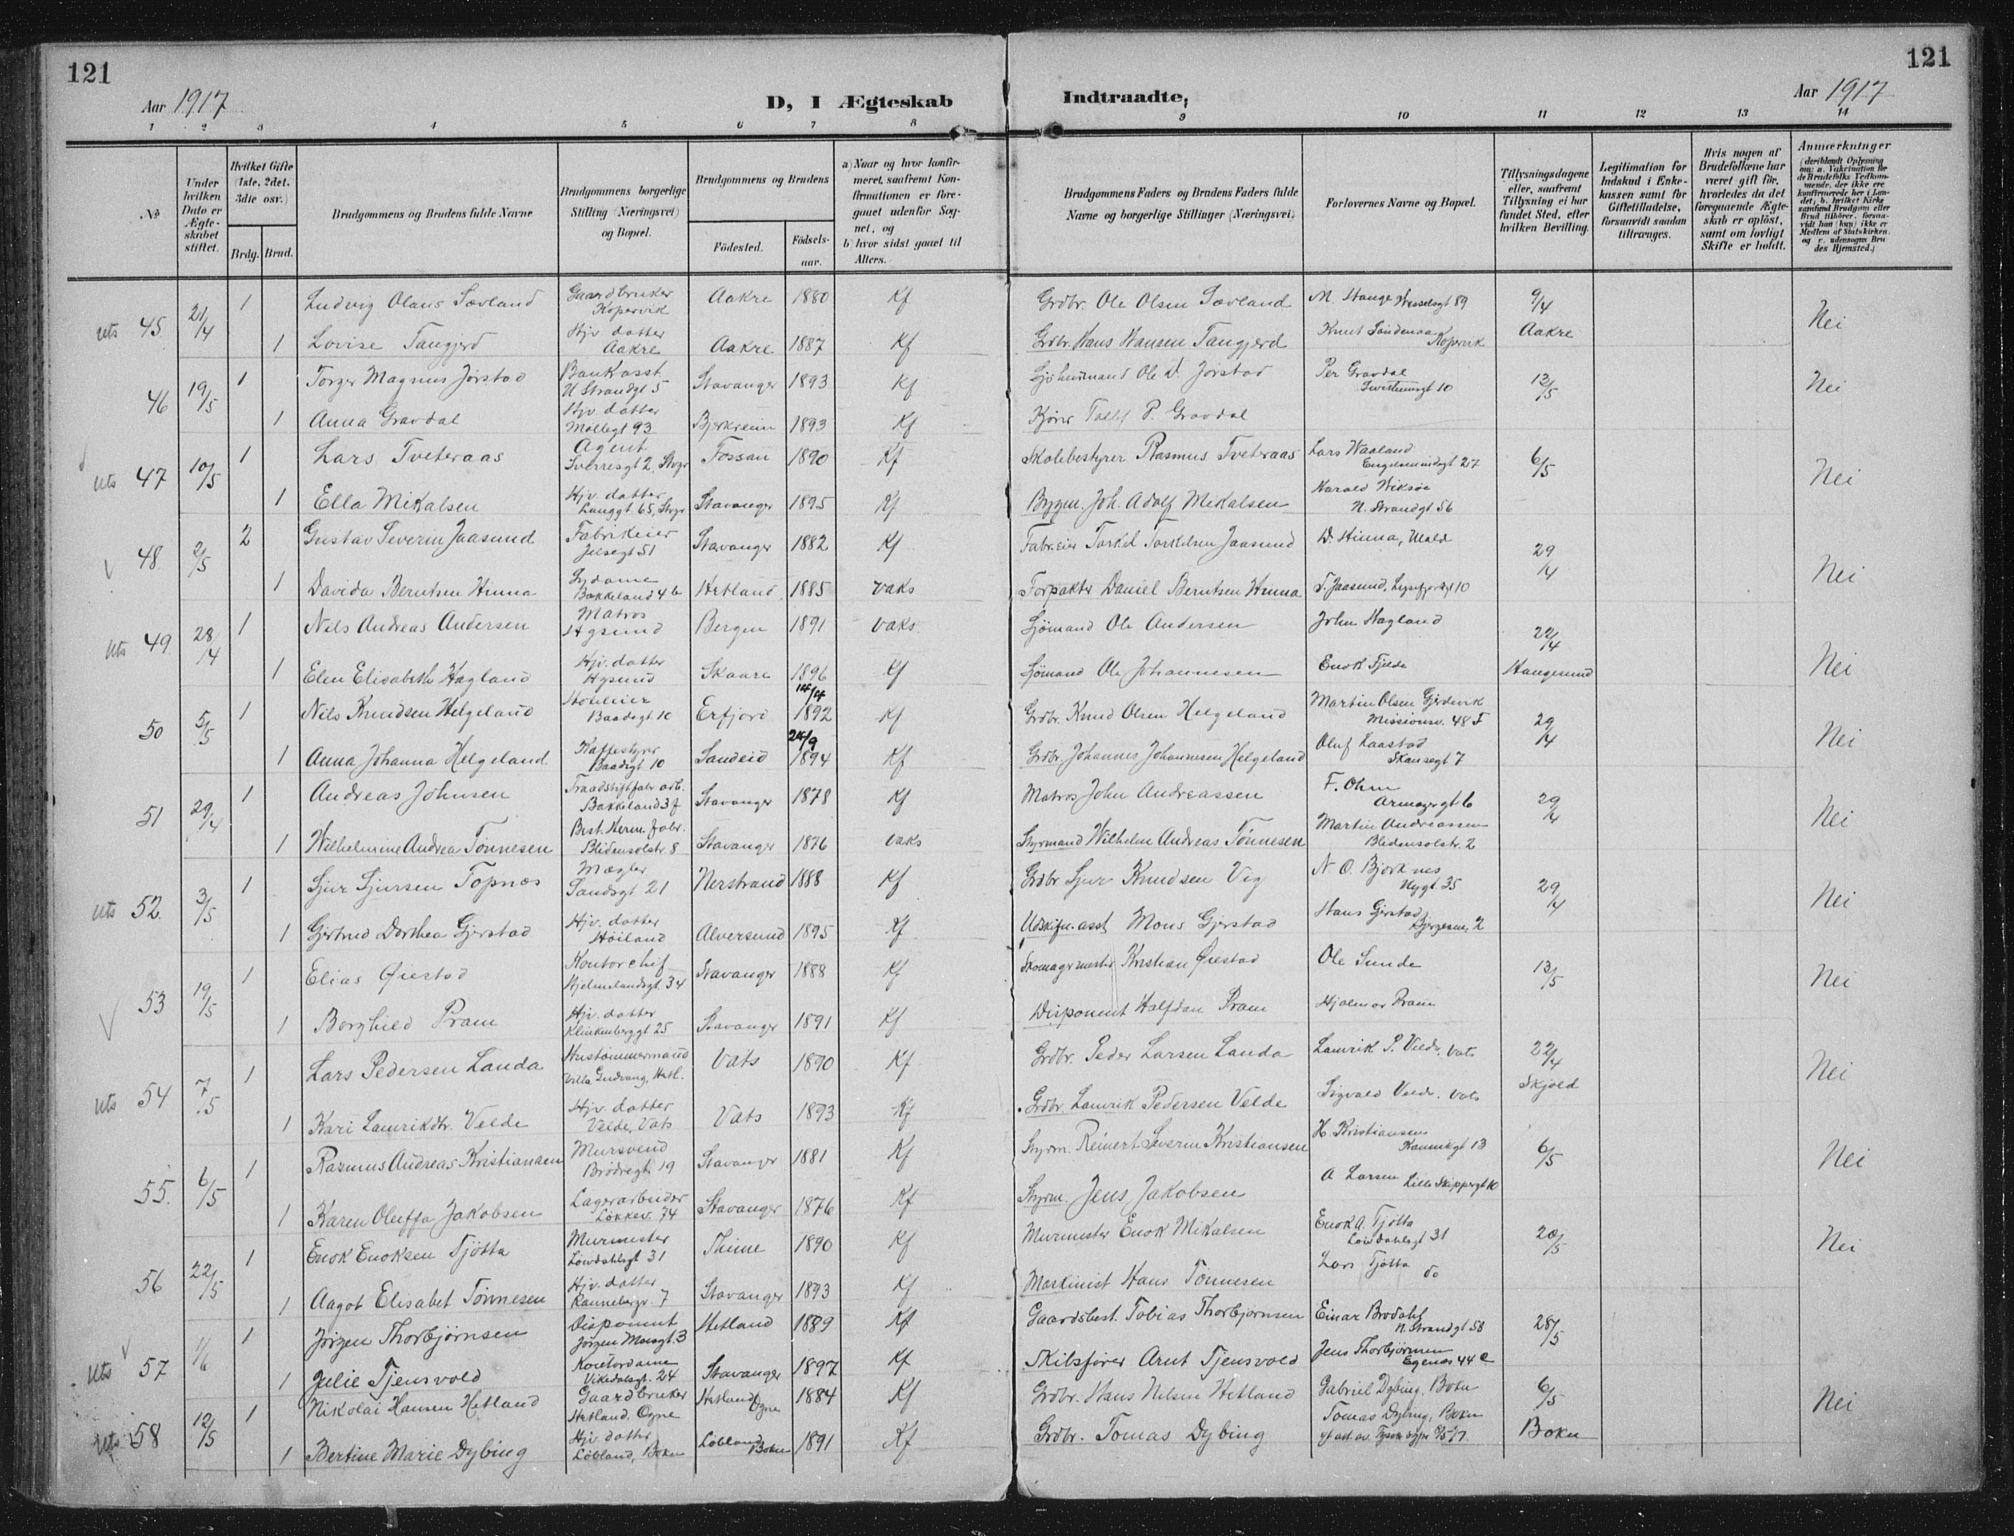 121
121
Aar 1917
D, I Ægteskab Indtraadte,
Aar 1917
1 2 3 4 5 6 7 8 9 10 11 12 13 14
No
Under hvilken Dato er Ægteskabet stiftet.
Hvilket Gifte (1ste, 2det, 3die osv.)
Brdg. Brud.
Brudgommens og Brudens fulde Navne
Brudgommens borgerlige Stilling (Næringsvei) og Bopæl.
Brudgommens og Brudens
Fødested.
Fødselsaar.
a) Naar og hvor konfirmeret, saafremt Konfirmationen er foregaaet udenfor Sognet, og
b) hvor sidst gaaet til Alters.
Brudgommens Faders og Brudens Faders fulde Navne og borgerlige Stillinger (Næringsvei)
Forlovernes Navne og Bopæl.
Tillysningsdagene eller, saafremt Tillysning ei har fundet Sted, efter hvilken Bevilling.
Legitimation for Indskud i Enkekassen samt for Giftetilladelse, forsaavidt saadan tiltrænges.
Hvis nogen af Brudefolkene har været gift før, hvorledes da det foregaaende Ægteskab er opløst, samt om lovligt Skifte er holdt.
Anmærkninger
uts 45. 21/4 1 Ludvig Olaus Sævland Gaardbruker Kopervik Aakre 1880 Kf Grdbr. Ole Olsen Sævland M. Hauge Wesselsgt 89 9/4 Nei
1 Lovise Tangjerd Hjv. datter Aakre Aakre 1887 Kf Grdbr. Hans Hansen Tangjerd Knut Sandenaa Kopervik Aakre
46 19/5 1 Torger Magnus Jørstad Bankasst. N Strandgt 5 Stavanger 1893 Kf Ole D. Jørstad Per Gravdal 13/5 Nei
1 Anna Gravdal Hjv. datter Møllegt 93 Bjerkreim 1893 Kf P. Gravdal
uts 47 10/5 1 Lars Tveteraas Agent Sverresgt 2, Stvgr Fossan 1890 Kf Skolebestyrer Rasmus Tveteraas Lars Waaland Engelsmindegt 27 6/5 Nei
1 Ella Mikalsen Hjv. datter Langgt 65, Stvgr Stavanger 1895 Kf Bygm. Joh. Adolf Mikalsen Harald Viksøe N. Strandgt 56
48. 2/5 2 Gustav Severin Jaasund Fabrikeier Jelsegt 51 Stavanger 1882 Kf Fabr.eier Torkel Torkelsen Jaasund D. Hinna, Uald 29/4 Nei
1 Davida Berntsen Hinna Sydame Bakkeland 46 Hetland 1885 vaks Forpakter Daniel Berntsen Hinna T. Jaasund, Lysefjordgt 10
uts 49. 28/4 1 Nils Andreas Andersen Matros Hgsund Bergen 1891 vaks. Sjømand Ole Andersen John Hagland 22/4 Nei
1 Elen Elisabeth Hagland Hjv. datter Hgsund Skaare 1896 Kf Sjømand Ole Johannesen Enok Tjelde Haugesund
50 5/5 1 Nils Knudsen Helgeland Hoteleier Baadsgt 10 Erfjord 14/4 1892 Kf Grdbr. Knud Olsen Helgeland Martin Olsen Gjerdevik Missionsv. 48 F 29/4 Nei
1 Anna Johanna Helgeland Kaffestyrer Baadsgt 10 Sandeid 24/9 1894 Kf Grdbr. Johannes Johannesen Helgeland Oluf Laastad Skansegt 7
51 29/4 1 Andreas Johnsen Traadstiftfabr arb. Bakkeland 37 Stavanger 1878 Kf Matros John Andreassen F. Ohm Armagergt 6 29/4 Nei
1 Wilhelmine Andrea Tønnesen Best. Herm. fabr. Blidensolstr. 8 Stavanger 1876 vaks Styrmand Wilhelm Andreas Tønnesen Martin Andreassen Blidensolstr. 2
uts 52. 3/5 1 Sjur Sjursen Topnes Mægler Sandsgt 21 Nerstrand 1888 Kf Grdbr. Sjur Knudsen Vig N O. Bjorknes Nygt. 35 29/4 Nei
1 Gjertrud Dorthea Gjerstad Hjv. datter Høiland Alversund 1895 Kf Udskiftn. asst Mons Gjerstad Hans Gjerstad 2
53 19/5 1 Elias Øiestad Kontorchef Hjelmelandsgt. 34 Stavanger 1888 Kf Skomagermester Kristian Øiestad Ole Sunde 13/5 Nei
1 Borghild Pram Hjv. datter Klinkenberggt 25 Stavanger 1891 Kf Disponent Halfdan Pram Hjalmar Pram
uts 54 7/5 1 Lars Pedersen Landa Hustømmermand Villa Gudvang, Hetl. Vats 1890 Kf Grdbr. Peder Larsen Landa Laurik P. Velde, Vats 22/4 Nei
1 Kari Lauriksdtr. Velde Hjv. datter Velde, Vats Vats 1893 Kf Grdbr. Laurik Pedersen Velde Sigvald Velde, Vats Skjold
55. 6/5 1 Rasmus Andreas Kristiansen Mursvend Brødregt 19 Stavanger 1881 Kf Styrm. Reinert Severin Kristiansen H. Kristiansen Kannikgt 13 6/5 Nei
1 Karen Oleffa Jakobsen Lagerarbeider Løkkev. 74 Stavanger 1876 Kf Styrm. Jens Jakobsen A Larsen Lille Skippergt 10
56 22/5 1 Enok Enoksen Tjøtta Murmester Lowdahlsgt 31 Thime 1890 Kf Murmester Enok Mikalsen Enok A. Tjøtta Lowdahlsgt 31 20/5 Nei
1 Aagot Elisabet Tønnesen Hjv. datter Rannebergv. 7 Stavanger 1893 Kf Maskinist Hans Tønnesen Lars Tjøtta do
uts 57 1/6 1 Jørgen Thorbjørnsen Disponent Jørgen Moesgt. 3 Hetland 1889 Kf Gaardsbest. Tobias Thorbjørnsen Einar Brodahl N. Strandgt 58 28/5
1 Julie Tjensvold Kontordame Vikedalsgt. 24 Stavanger 1897 Kf Skibsfører Arnt Tjensvold Jens Thorbjørnsen Egenes 44 c
uts 58 12/5 1 Nikolai Hansen Hetland Gaardbruker Hetland, Ogne Hetland Ogne 1884 Kf Grdbr. Hans Nilsen Hetland Gabriel Dybing, Bokn 6/5 Nei
1 Bertine Marie Dybing Hjv. datter Løbland, Bokn Løbland Bokn 1891 Kf Grdbr. Tomas Dybing Tomas Dybing, Bokn Bokn